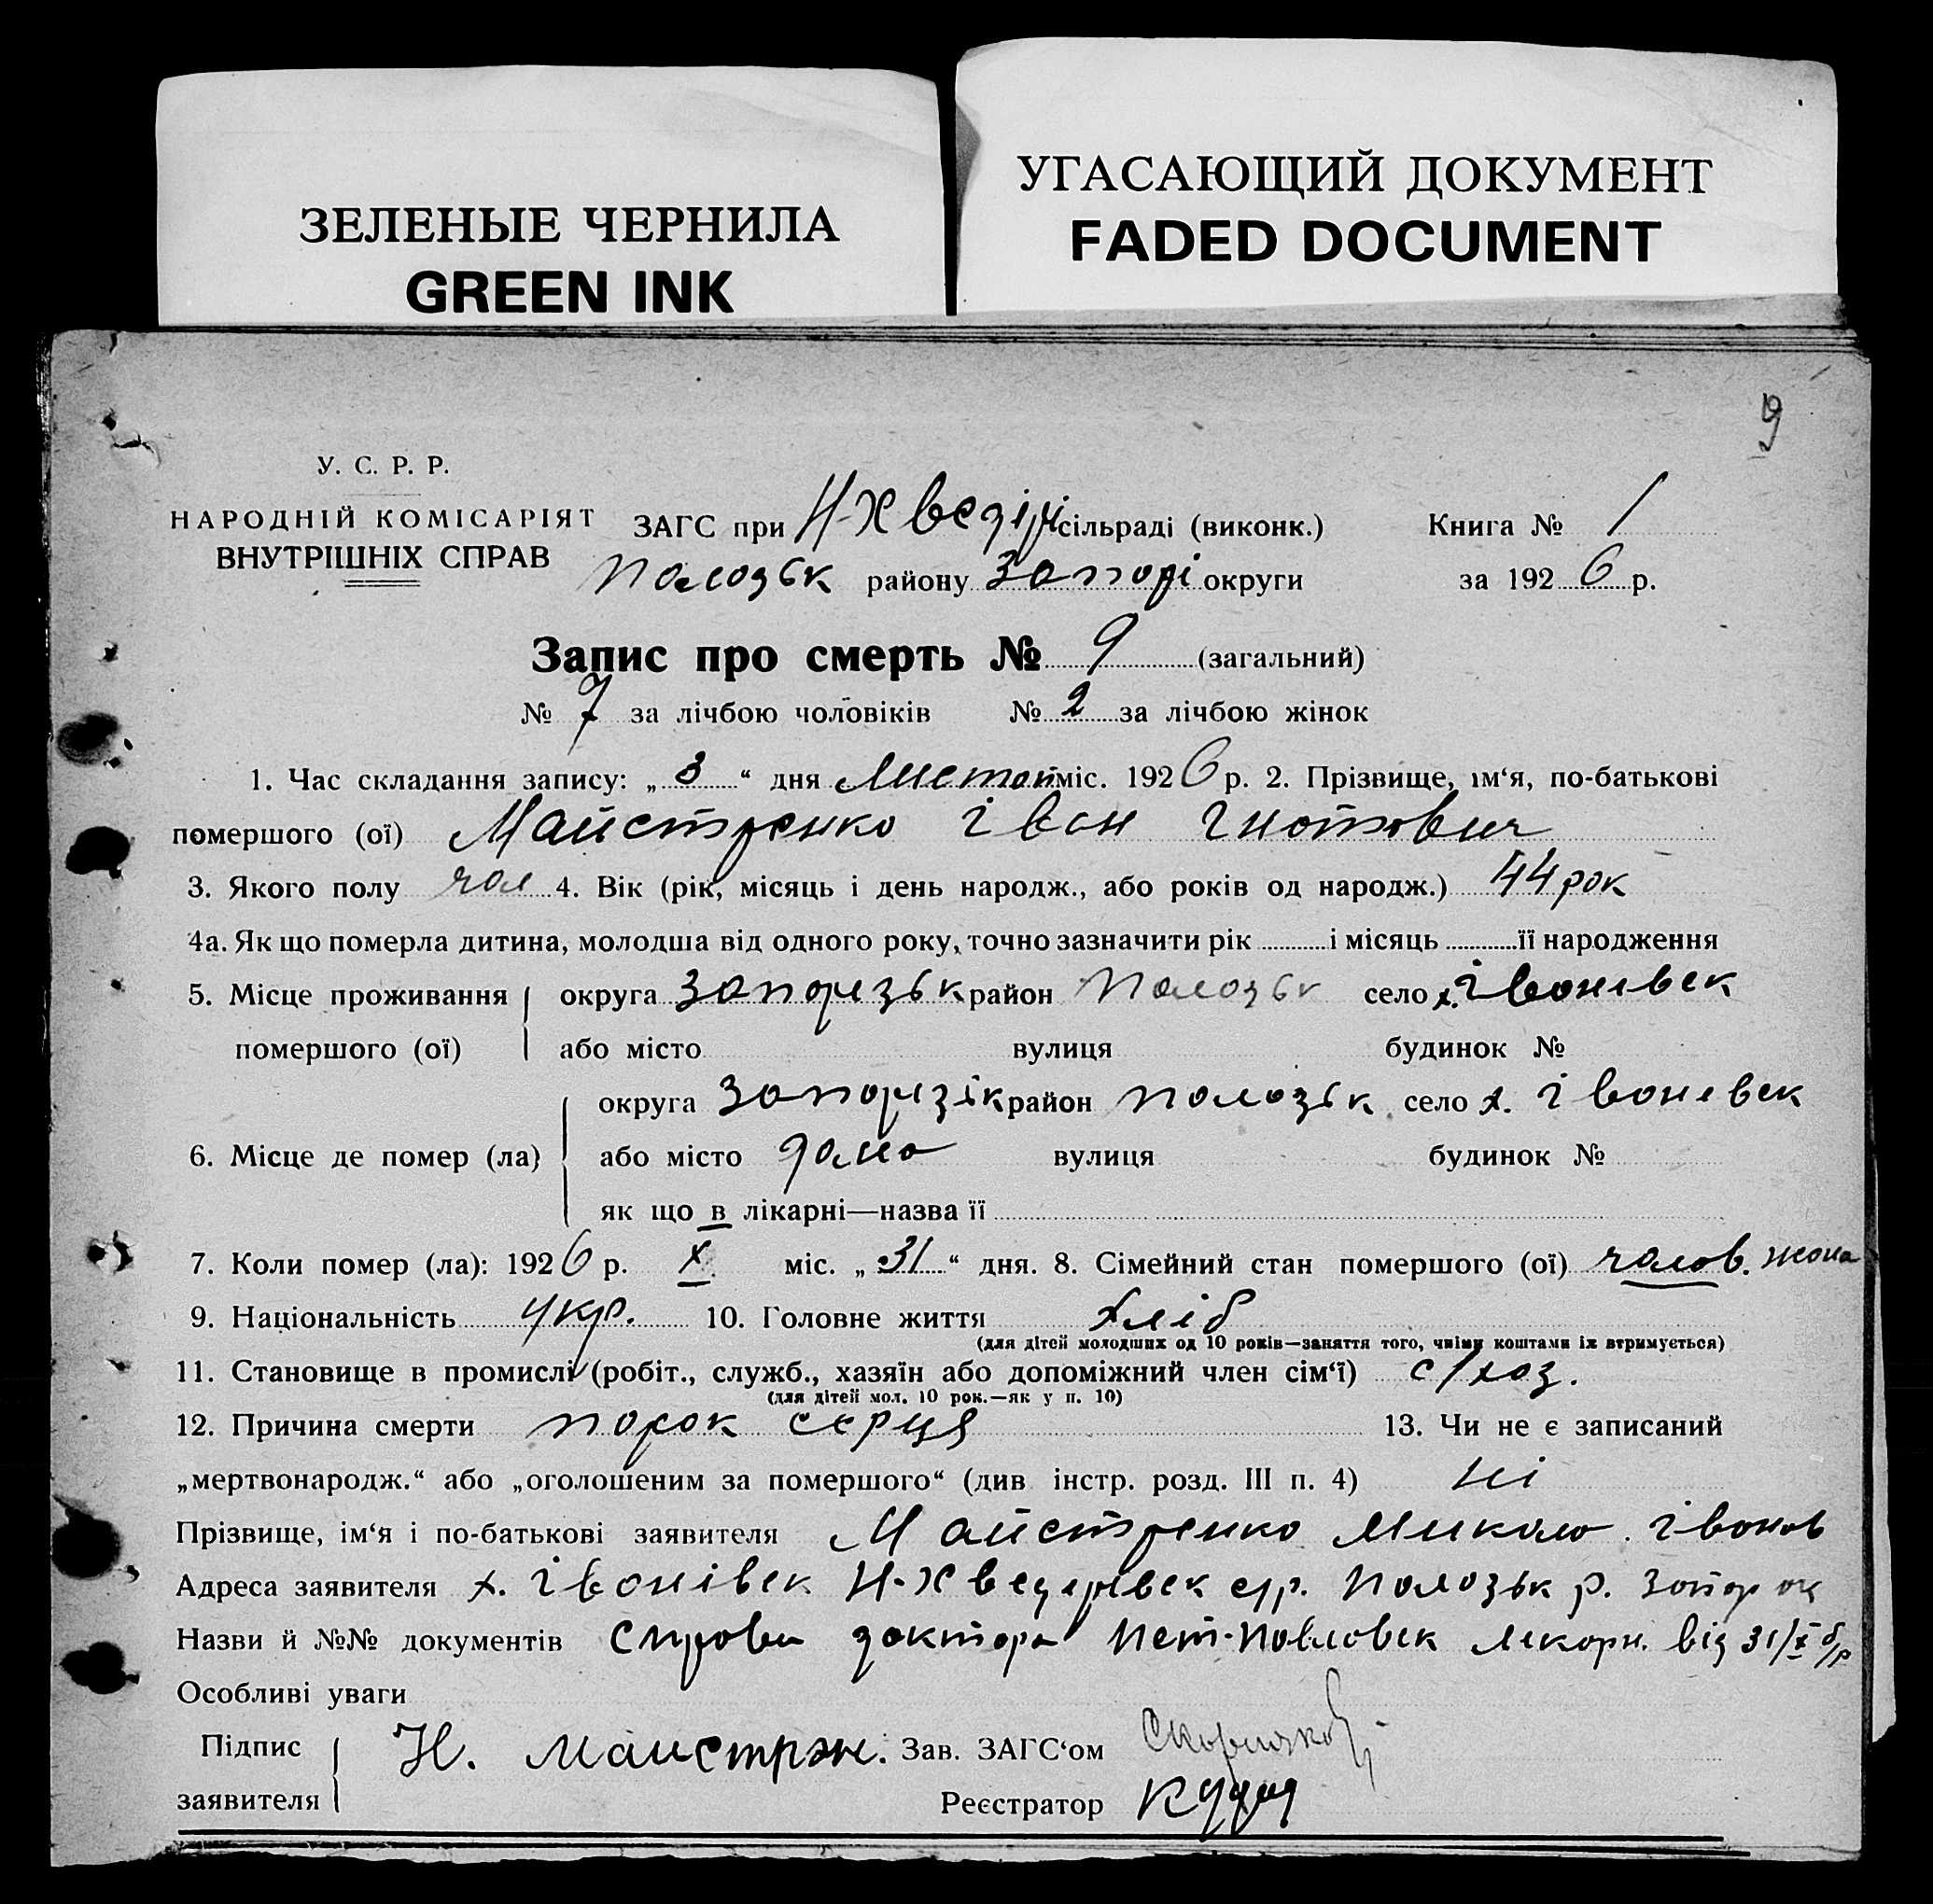 ЗЕЛЕНЫЕ ЧЕРНИЛА
GREEN INK
УГАСАЮЩИЙ ДОКУМЕНТ
FADED DOCUMENT
9
У. С. Р. Р.
НАРОДНІЙ КОМІСАРІЯТ
ВНУТРІШНІХ СПРАВ
ЗАГС при Н-Хведірі сільраді (виконк.) Книга № 1
Полозьк району Запорі округи за 1926 р.
Запис про смерть № 9 (загальний)
№ 7 за лічбою чоловіків № 2 за лічбою жінок
1. Час складання запису: „3“ дня Листоп міс. 1926 р. 2. Прізвище, ім‘я, по-батькові
помершого (ої) Майстренко Іван Гнотович
3. Якого полу чол 4. Вік (рік, місяць і день народж., або років од народж.) 44 рок
4а. Як що померла дитина, молодша від одного року, точно зазначити рік і місяць її народження
5. Місце проживання помершого (ої) округа Запорізьк район Полозьк село х. Іванівск
або місто вулиця будинок №
6. Місце де помер (ла) округа Запорізік район Полозьк село х. Іванівск
або місто дома вулиця будинок №
як що в лікарні—назва її
7. Коли помер (ла): 1926 р. X міс. „31“ дня. 8. Сімейний стан помершого (ої) чолов. жона
9. Національність укр. 10. Головне життя хліб
(для дітей молодших од 10 років—заняття того, чиїми коштами їх втримується)
11. Становище в промислі (робіт., служб., хазяїн або допоміжний член сім‘ї) с/хоз.
(для дітей мол. 10 рок.—як у п. 10)
12. Причина смерти порок серця 13. Чи не є записаний
„мертвонародж.“ або „оголошеним за помершого“ (див інстр. розд. III п. 4) ні
Прізвище, ім‘я і по-батькові заявителя Майстренко Микола Іванов
Адреса заявителя х. Іванівск Н-Хведерівск с/р. Полозьк р. Запор ок
Назви й №№ документів справки доктора Пет-Павловск лекарн. від 31/X б/р
Особливі уваги
Підпис заявителя Н. Маистрен. Зав. ЗАГС‘ом
Реєстратор